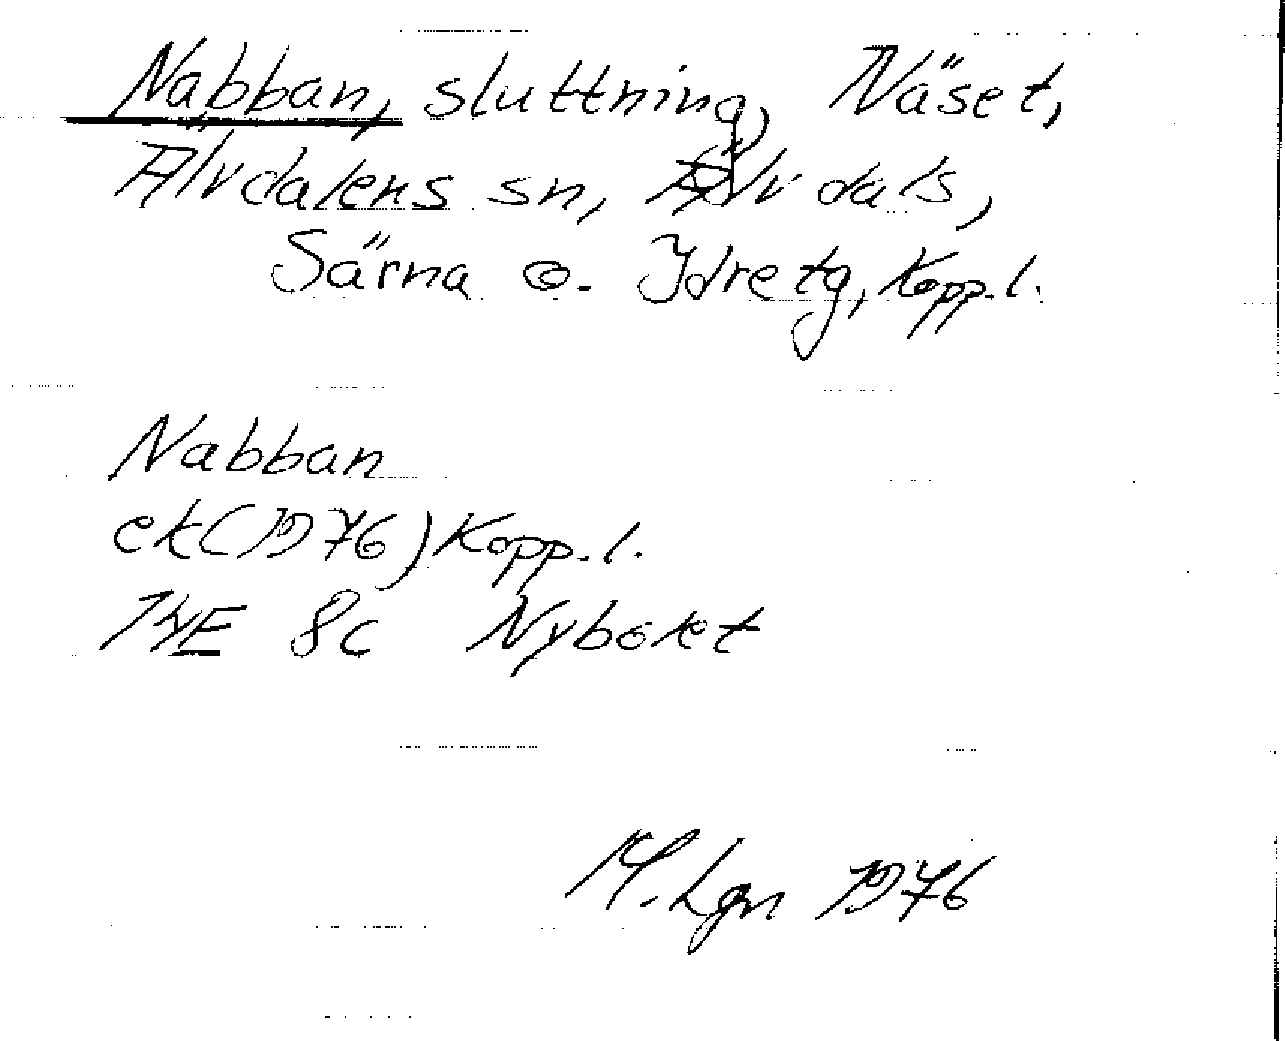 Nabban, sluttning, Näset,
Älvdalens sn, Älvdals,
Särna o. Idretg, Kopp. l.
Nabban
ek (1976) Kopp. l.
14E 8c Nybolet
M. Lgn 1976